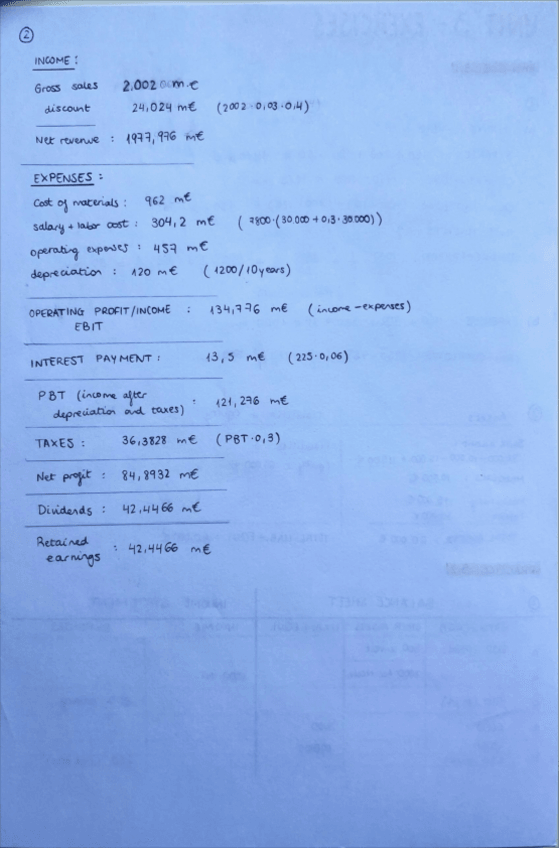 2
INCOME:
Gross sales 2.002 m.€
discount 24,024 m€ (2002·0,03·0,4)
Net revenue : 1977,976 m€
EXPENSES:
Cost of materials: 962 m€
salary + labor cost: 304,2 m€ (7800·(30.000+0,3·30000))
operating expenses: 457 m€
depreciation : 120 m€ (1200/10years)
OPERATING PROFIT/INCOME : 134,776 m€ (income-expenses)
EBIT
INTEREST PAYMENT: 13,5 m€ (225·0,06)
PBT (income after
depreciation and taxes) : 121,276 m€
TAXES : 36,3828 m€ (PBT·0,3)
Net profit : 84,8932 m€
Dividends : 42,4466 m€
Retained
earnings : 42,4466 m€